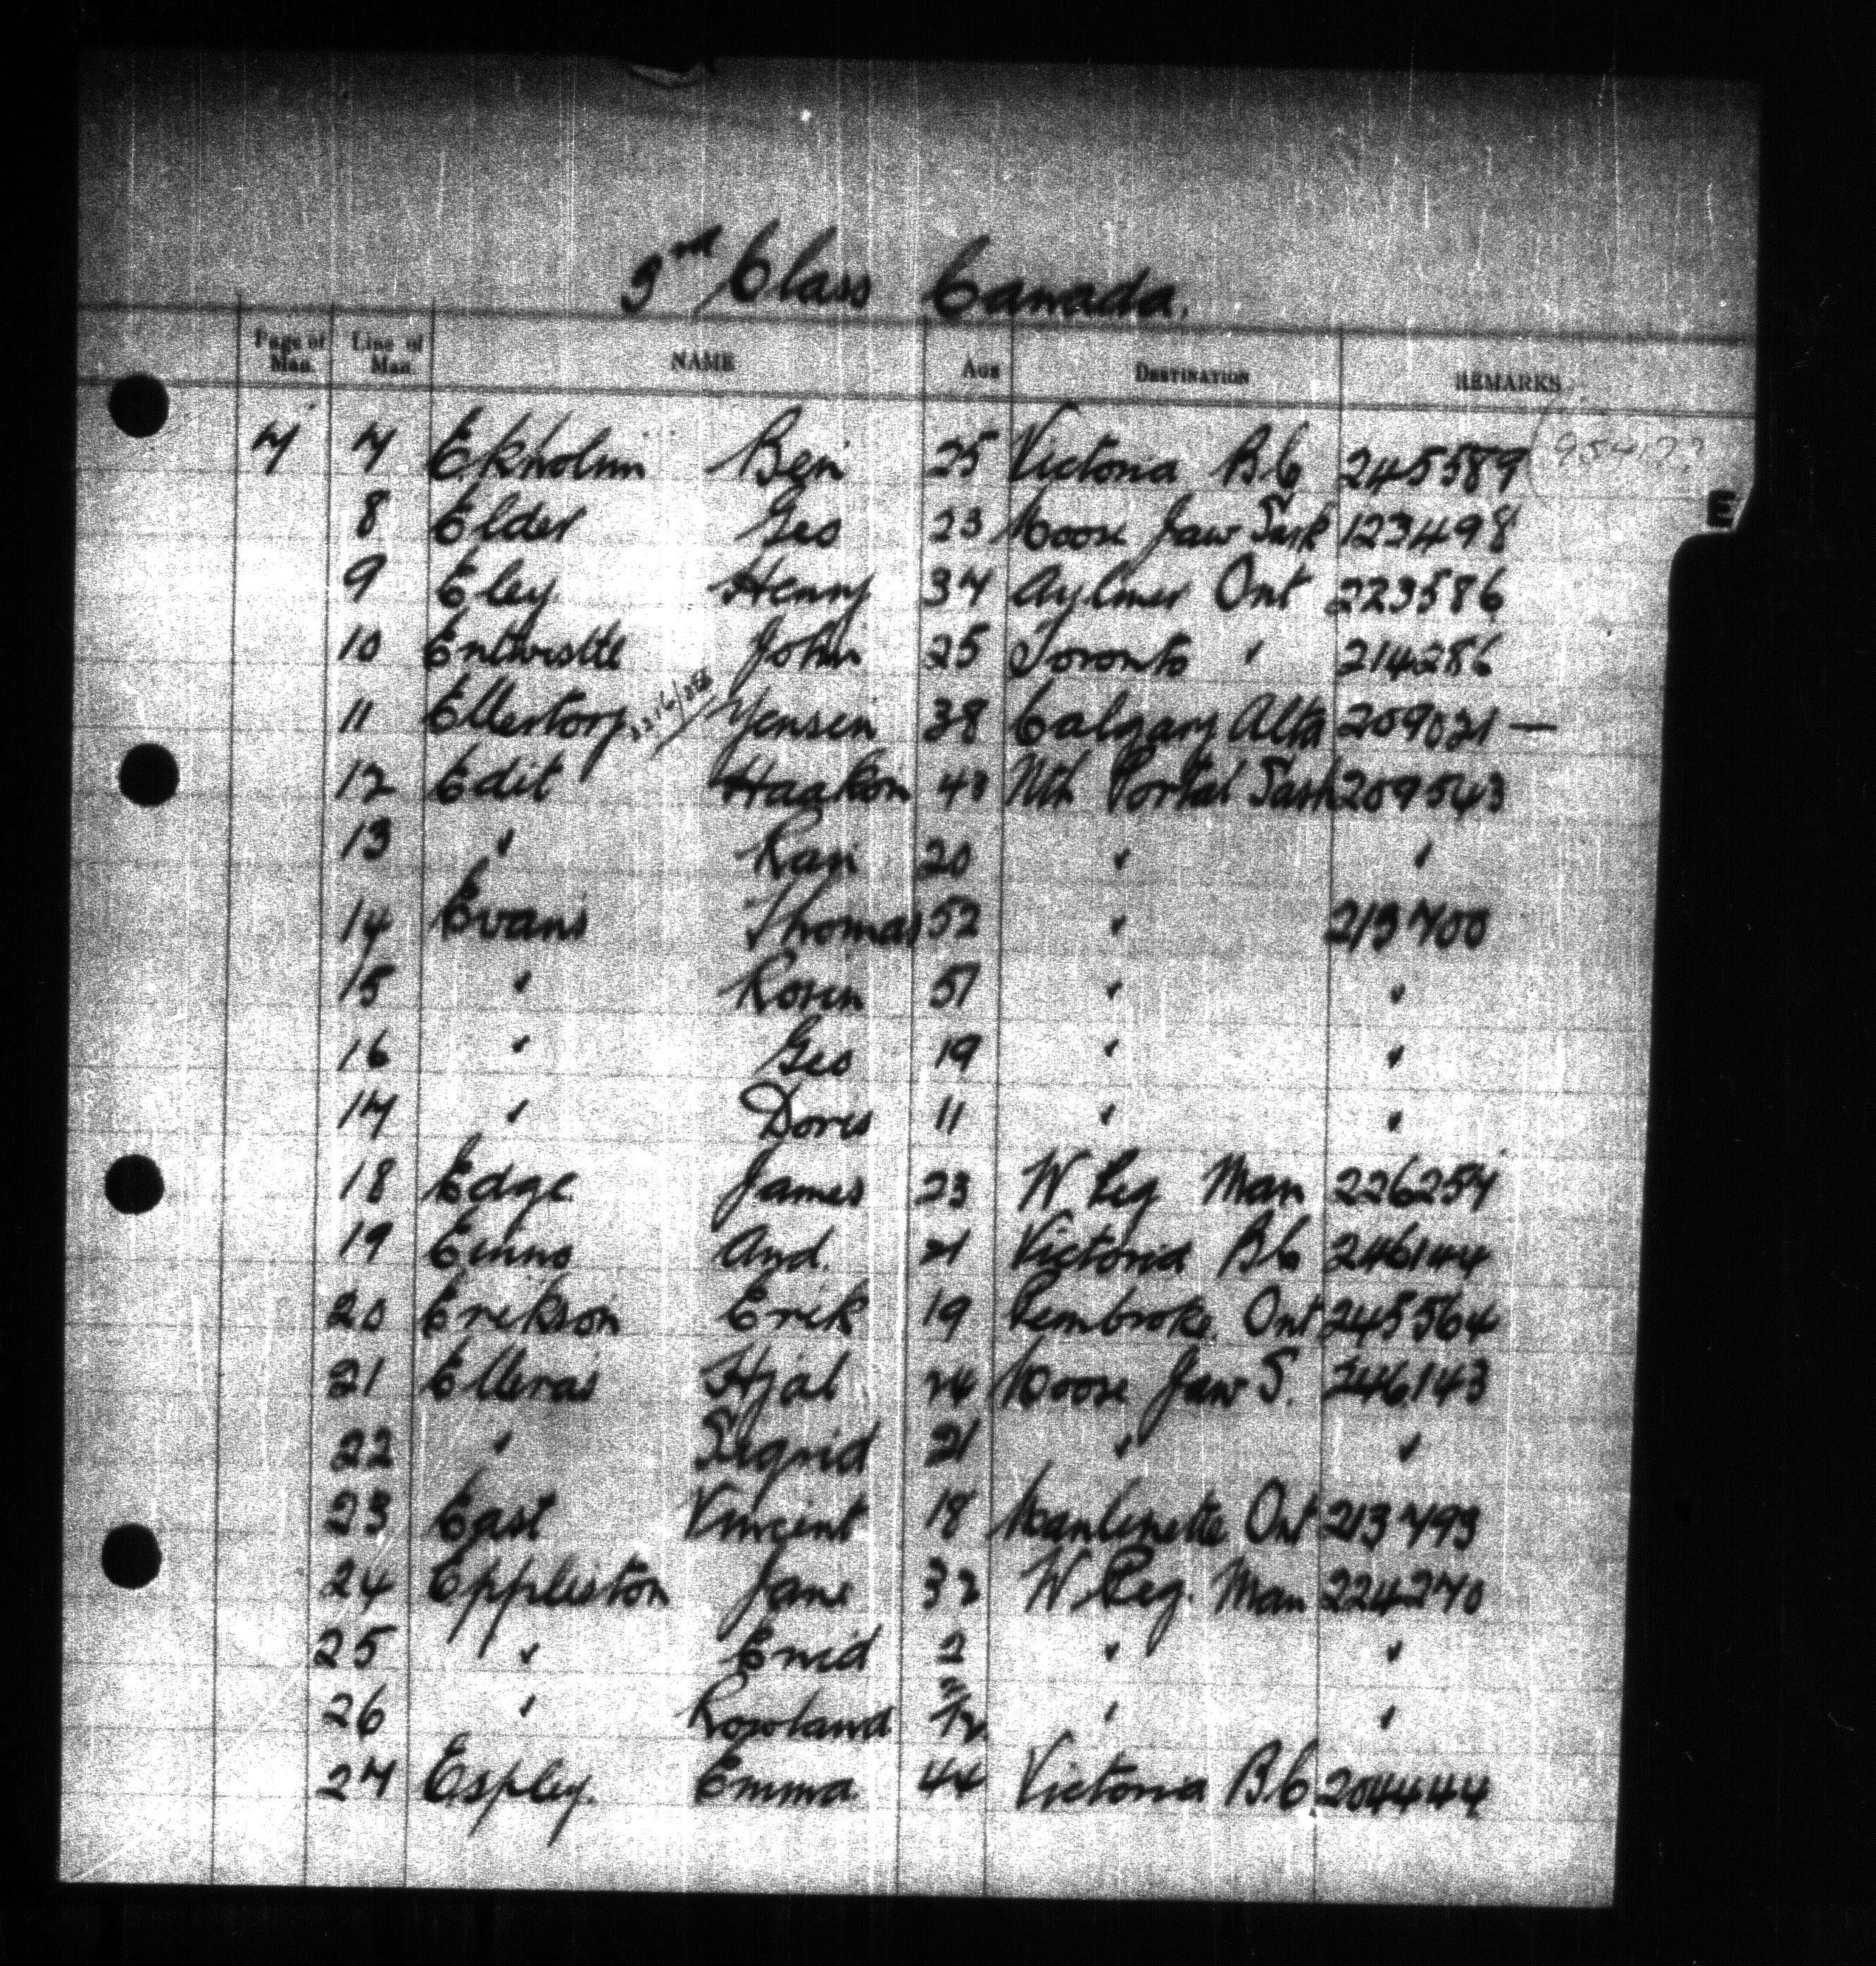 3rd Class Canada.
Page of Man. Line of Man. NAME AGE DESTINATION REMARKS
7 7 Ekholm Ben 25 Victoria B C 245589
8 Elder Geo 23 Moose Jaw Sask 123498
9 Eley Henry 37 Aylmer Ont 223586
10 Entwistle John 25 Toronto " 214286
11 Ellertorp Yensen 38 Calgary Alta 209021 —
12 Edit Haakon 48 Nth Portal Sask 209543
13 " Kari 20 " "
14 Evans Thomas 52 " 213700
15 " Rosen 57 " "
16 " Geo 19 " "
17 " Doris 11 " "
18 Edge James 23 W Peg Man 226257
19 And. 21 Victoria B C 246144
20 Erikson Erik 19 Pembroke Ont 245564
21 Elleras Hjal 24 Moose Jaw S. 246143
22 " Sigrid 21 " "
23 East Vincent 18 Ont 213793
24 Eppleston Jane 32 W Peg. Man 224270
25 " Enid 2 " "
26 " Rowland " "
27 Espley. Emma 44 Victoria B C 204444
E